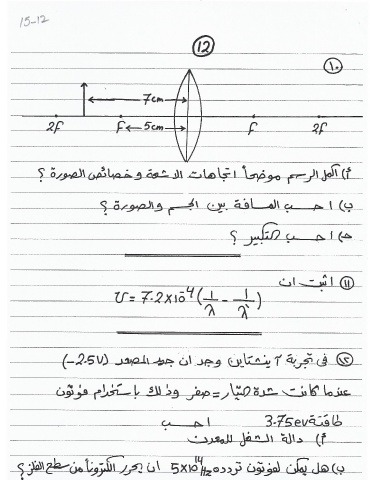 15-12
12
١٠
7cm
2f f 5cm f 2f
أ) اكمل الرسم موضحاً اتجاهات الاشعة وخصائص الصورة ؟
ب) احسب المسافة بين الجسم والصورة ؟
حـ) احسب التكبير ؟
١١ اثبت ان
v = 7.2×10⁻⁴ (1/λ - 1/λ)
١٢ في تجربة آينشتاين وجد ان جهد المصدر (-2.5V)
عندما كانت شدة التيار = صفر وذلك باستخدام فوتون
طاقتة 3.75ev احسب
أ) دالة الشغل للمعدن
ب) هل يمكن لفوتون تردده 5×10¹⁴Hz ان يحرر الكتروناً من سطح الفلز؟